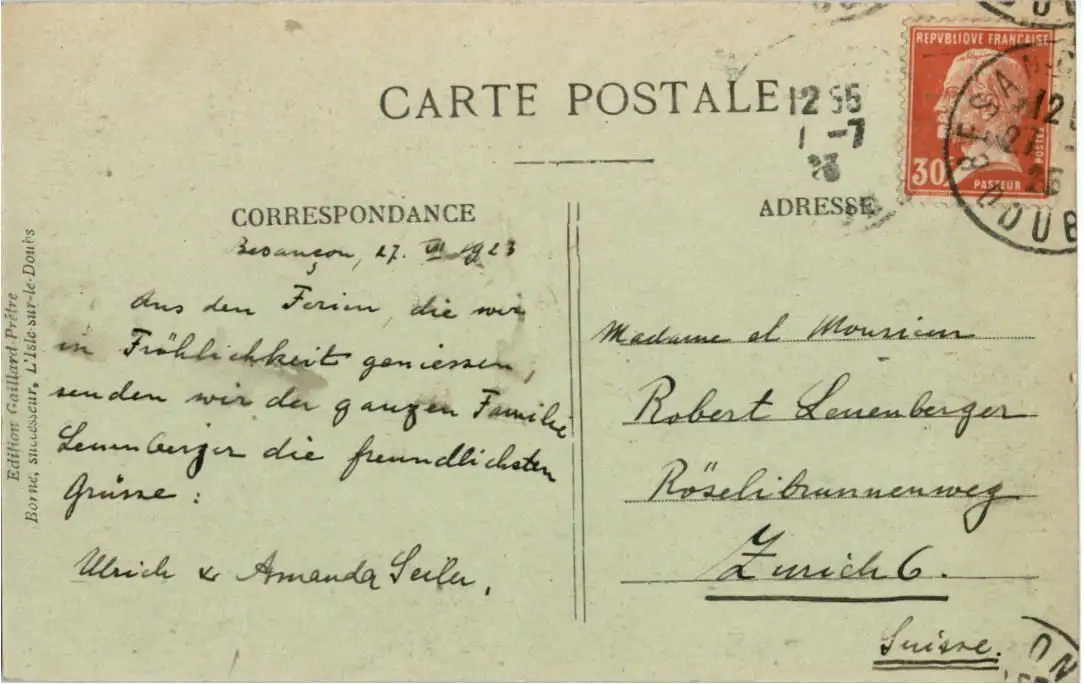 CARTE POSTALE
REPVBLIQUE FRANÇAISE
30
POSTES
PASTEUR
BESANÇON
DOUBS
12
27
26
12 55
1 -7
CORRESPONDANCE
Besançon, 27. VII 1923
Aus den Ferien, die wir
in Fröhlichkeit geniessen,
senden wir der ganzen Familie
Leuenberger die freundlichsten
Grüsse:
Ulrich & Amanda Seiler,
ADRESSE
Madame et Monsieur
Robert Leuenberger
Röselibrunnenweg
Zurich 6.
Suisse.
Edition Gaillard-Prêtre
Borne, successeur, L'Isle-sur-le-Doubs
ON